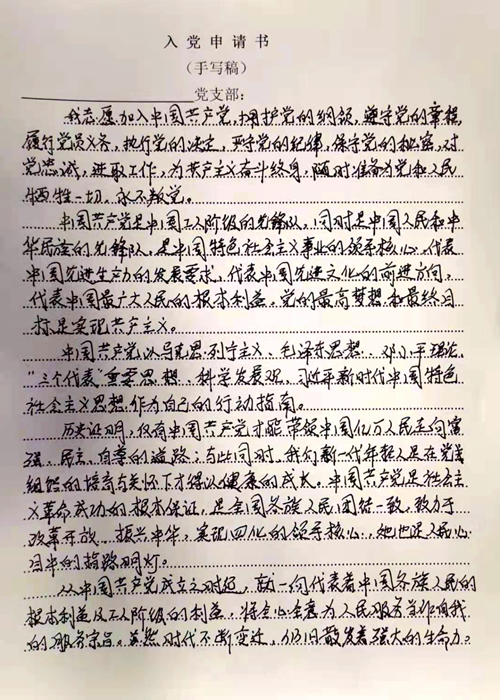 入党申请书
（手写稿）
党支部：
我志愿加入中国共产党，拥护党的纲领，遵守党的章程，
履行党员义务，执行党的决定，严守党的纪律，保守党的秘密，对
党忠诚，进取工作，为共产主义奋斗终身，随时准备为党和人民
牺牲一切，永不叛党。
中国共产党是中国工人阶级的先锋队，同时是中国人民和中
华民族的先锋队，是中国特色社会主义事业的领导核心，代表
中国先进生产力的发展要求，代表中国先进文化的前进方向，
代表中国最广大人民的根本利益。党的最高梦想和最终目
标是实现共产主义。
中国共产党以马克思列宁主义、毛泽东思想、邓小平理论、
“三个代表”重要思想、科学发展观，习近平新时代中国特色
社会主义思想作为自己的行动指南。
历史证明，仅有中国共产党才能带领中国亿万人民走向富
强、民主、自尊的道路；与此同时，我们新一代年轻人是在党
组织的培育与关怀下才得以健康的成长。中国共产党是社会主
义革命成功的根本保证，是全国各族人民团结一致，致力于
改革开放、振兴中华，实现四化的领导核心，她也是人民心
目中的指路明灯。
从中国共产党成立之时起，就一向代表着中国各族人民的
根本利益及工人阶级的利益，将全心全意为人民服务当作自我
的服务宗旨。虽然时代不断变迁，仍旧散发着强大的生命力。